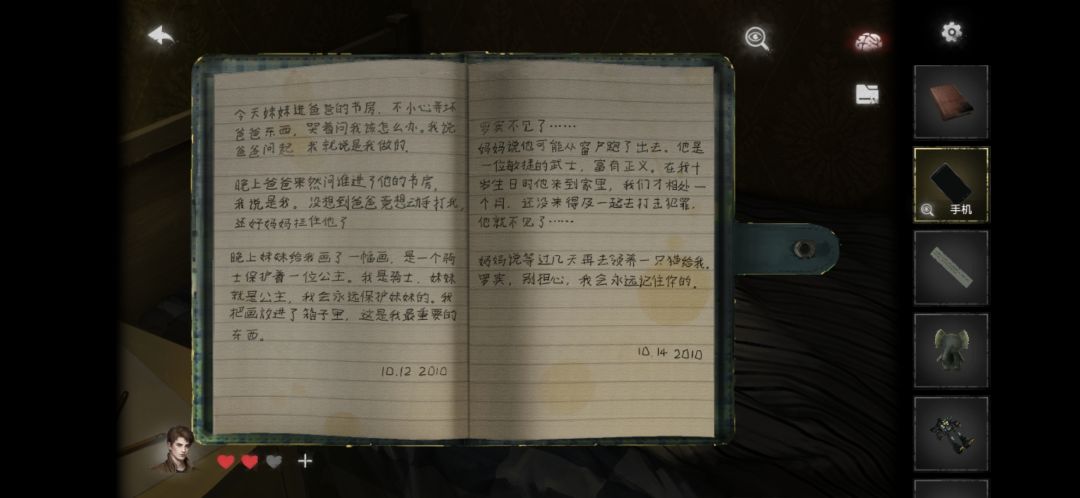 今天妹妹进爸爸的书房，不小心弄坏
爸爸东西，哭着问我该怎么办。我说
爸爸问起，我就说是我做的。
晚上爸爸果然问谁进了他的书房，
我说是我。没想到爸爸竟想动手打我，
还好妈妈拦住他了
晚上妹妹给我画了一幅画，是一个骑
士保护着一位公主。我是骑士，妹妹
就是公主，我会永远保护妹妹的。我
把画放进了箱子里，这是我最重要的
东西。
10.12 2010
罗宾不见了……
妈妈说他可能从窗户跑了出去。他是
一位敏捷的武士，富有正义。在我十
岁生日时他来到家里，我们才相处一
个月，还没来得及一起去打击犯罪，
他就不见了……
妈妈说等过几天再去领养一只猫给我。
罗宾，别担心，我会永远记住你的。
10.14 2010
手机